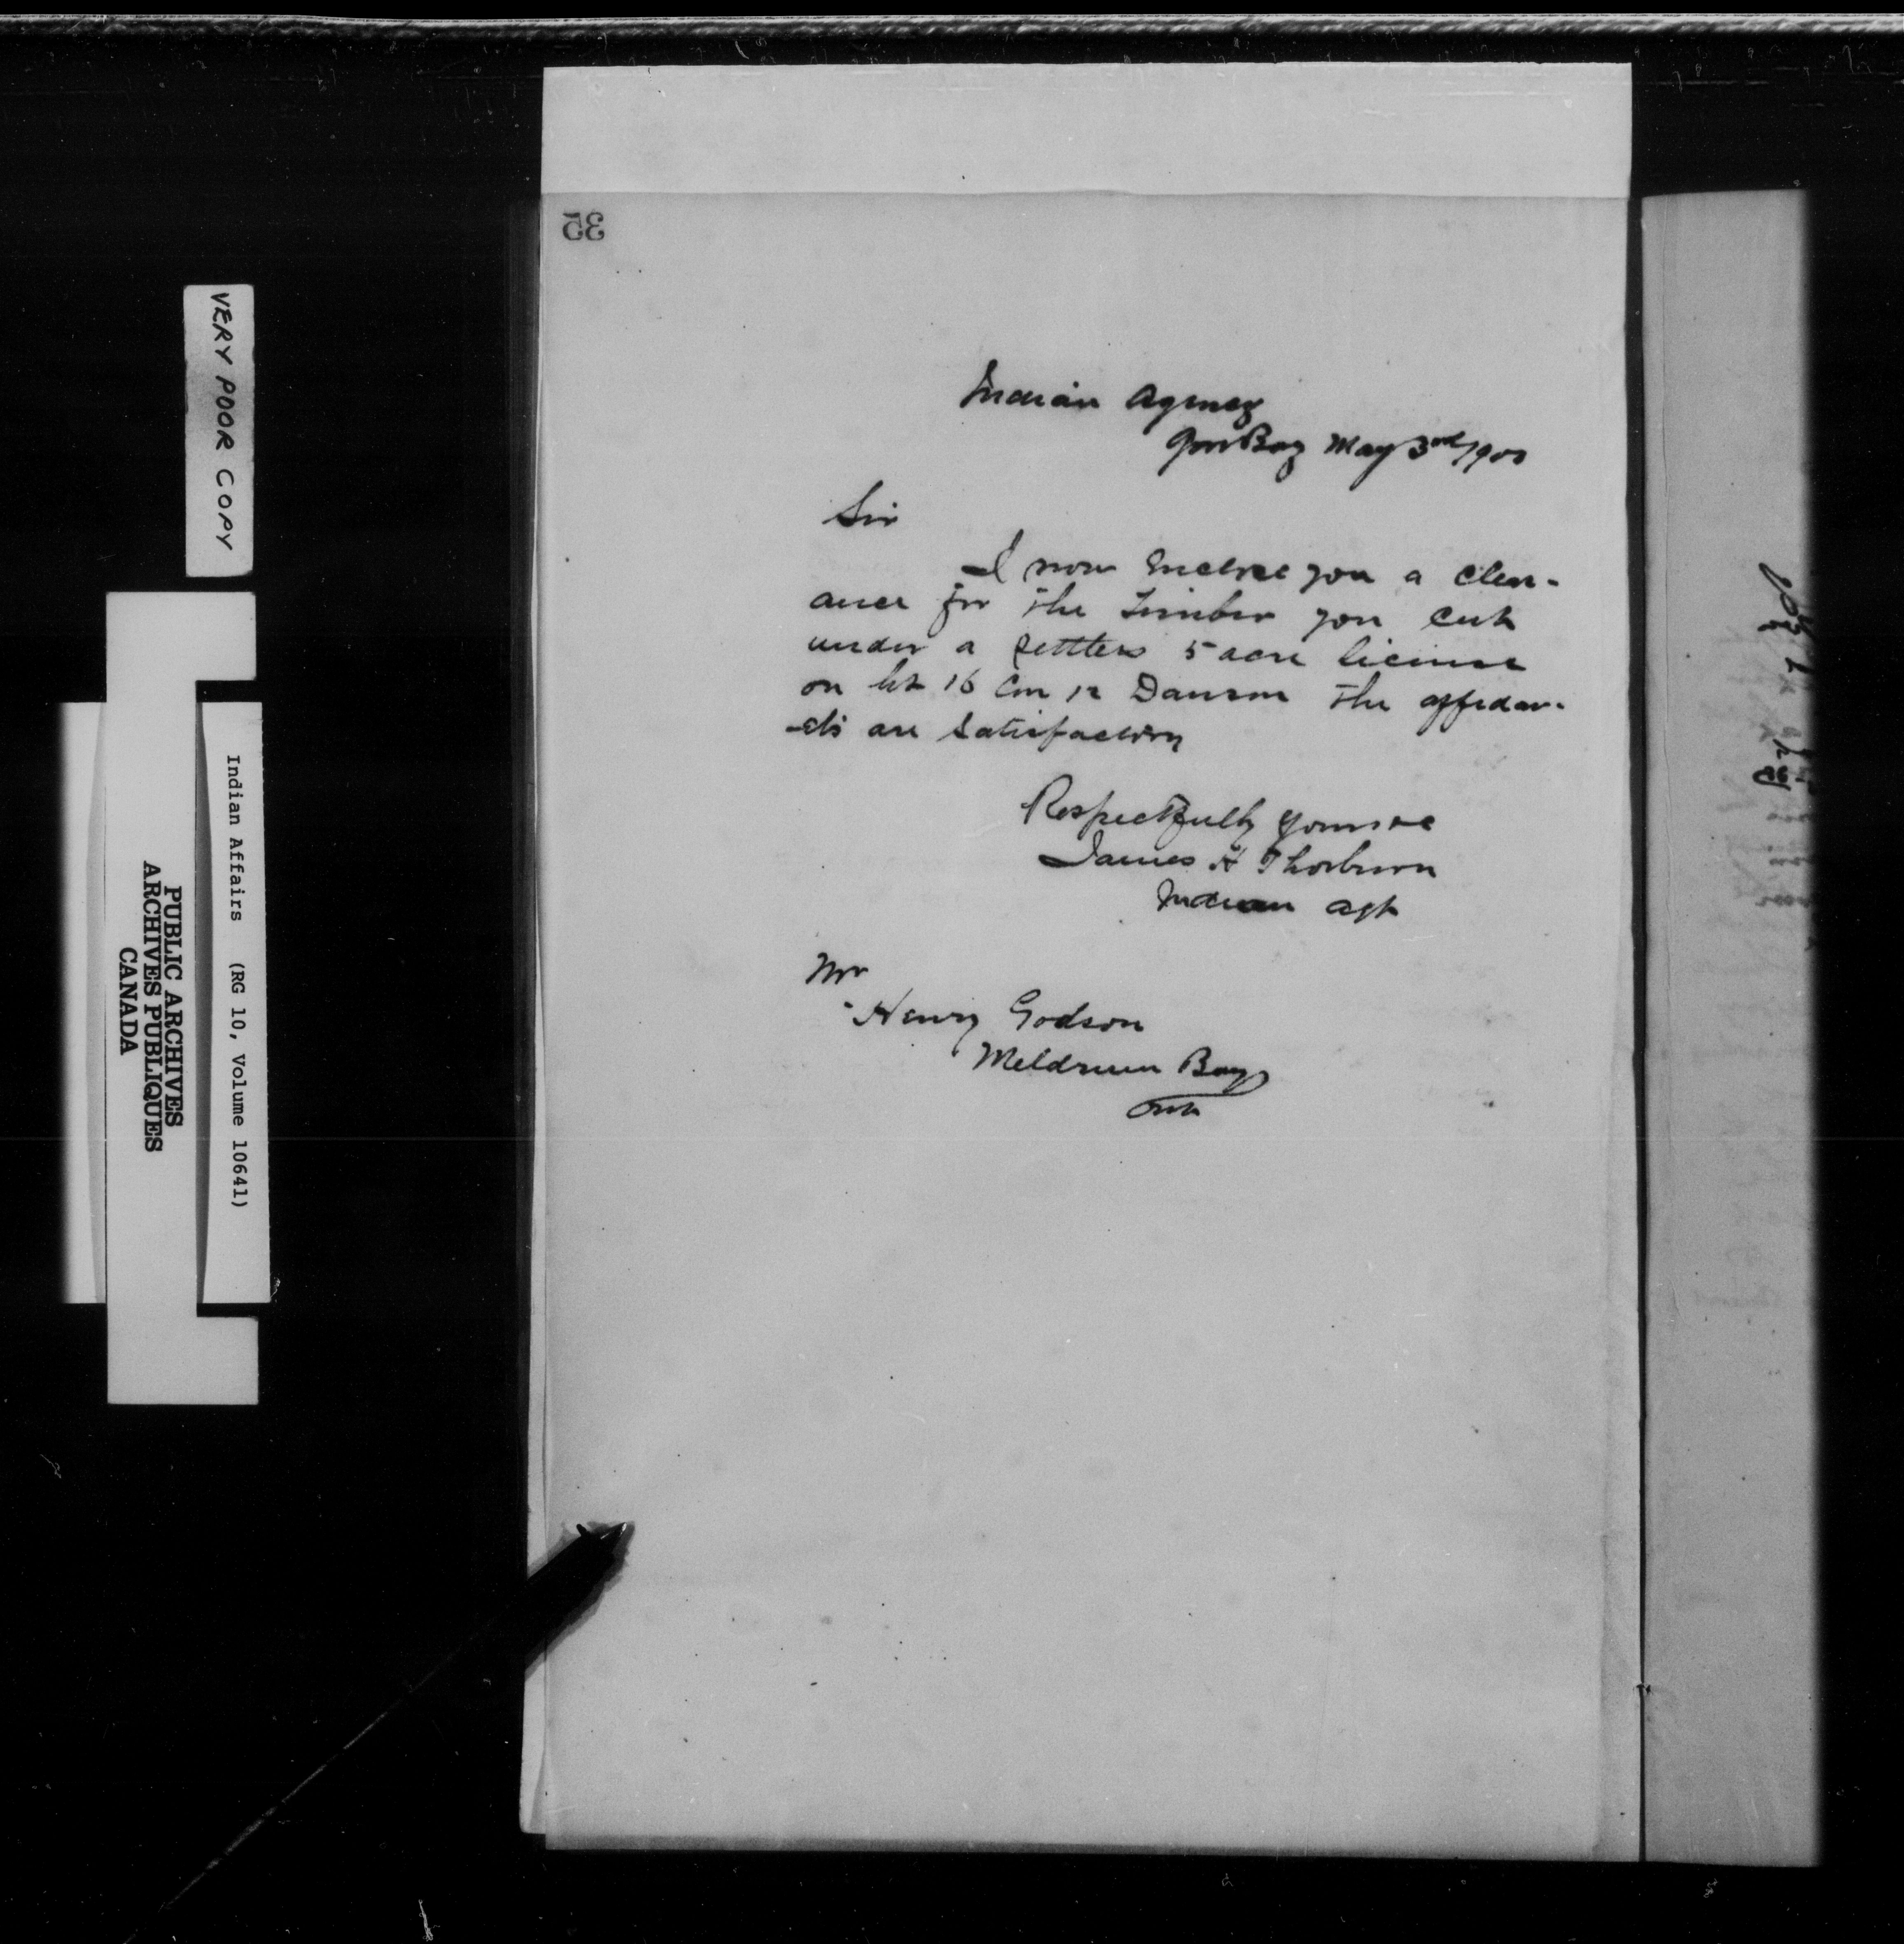 35
Indian Agency
Gore Bay May 3rd/1900
Sir
I now Enclose you a Clear-
ance for the Timber you Cut
under a Settlers 5 acre license
on lot 16 Con 12 Dawson The affidav-
-its are Satisfactory
Respectfully Yours &c
James H Thorburn
Indian Agt
Mr
Henry Godson
Meldrum Bay
Ont
VERY POOR COPY
Indian Affairs (RG 10, Volume 10641)
PUBLIC ARCHIVES
ARCHIVES PUBLIQUES
CANADA